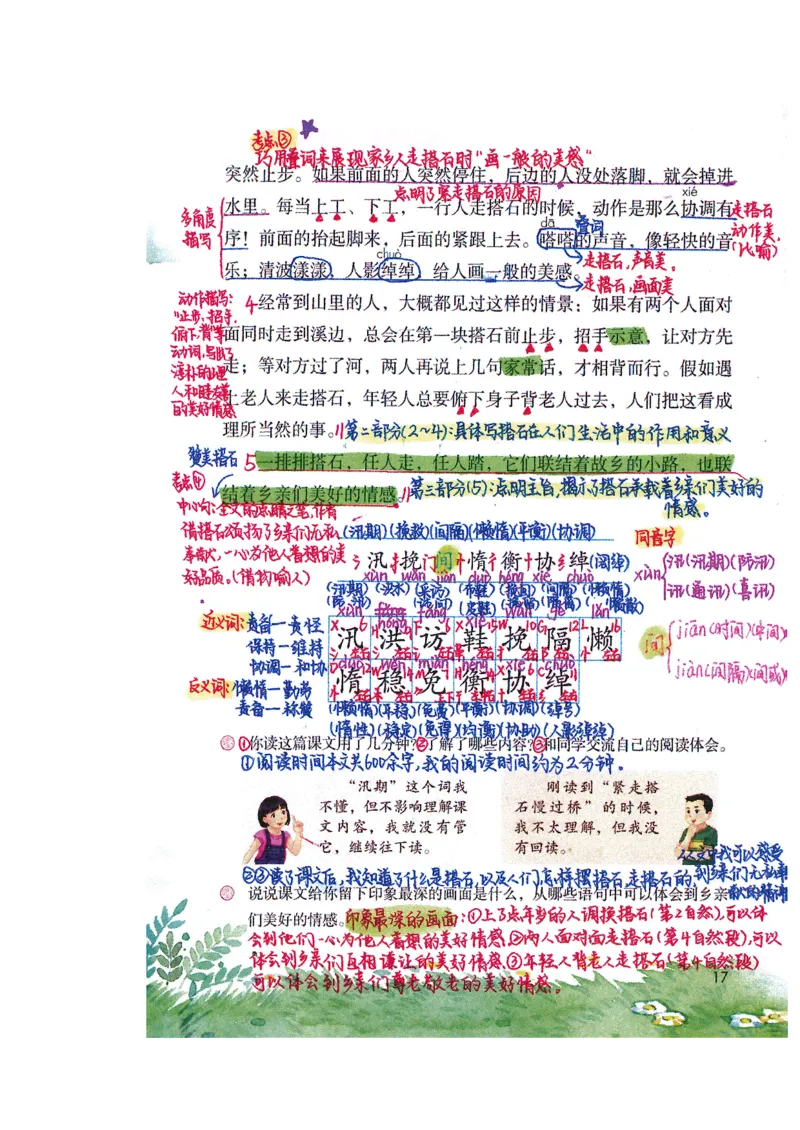 考点③
巧用叠词来展现家乡人走搭石时"画一般的美感"
突然止步。如果前面的人突然停住，后边的人没处落脚，就会掉进
点明了紧走搭石的原因
xié
多角度描写
水里。每当上工、下工，一行人走搭石的时候，动作是那么协调有
走搭石动作美(比喻)
dā
叠词
序！前面的抬起脚来，后面的紧跟上去。嗒嗒的声音，像轻快的音
chuò
走搭石，声音美。
乐；清波漾漾，人影绰绰，给人画一般的美感。
走搭石，画面美
动作描写：
"止步、招手、
俯下、背"等
动词，写出了
淳朴的山里
人和睦友善
的美好情感
4经常到山里的人，大概都见过这样的情景：如果有两个人面对
面同时走到溪边，总会在第一块搭石前止步，招手示意，让对方先
走；等对方过了河，两人再说上几句家常话，才相背而行。假如遇
上老人来走搭石，年轻人总要俯下身子背老人过去，人们把这看成
理所当然的事。
第二部分(2～4)：具体写搭石在人们生活中的作用和意义
赞美搭石
5一排排搭石，任人走，任人踏，它们联结着故乡的小路，也联
结着乡亲们美好的情感。
第三部分(5)：点明主旨，揭示了搭石承载着乡亲们美好的
情感。
考点④
中心句：全文的点睛之笔，作者
借搭石颂扬了乡亲们无私
奉献，一心为他人着想的美
好品质。(借物喻人)
(汛期)(挽救)(间隔)(懒惰)(平衡)(协调)
汛 挽 间 惰 衡 协 绰
xùn wǎn jiàn duò héng xié chuò
同音字
xùn
汛(汛期)(防汛)
讯(通讯)(喜讯)
间
jiān(时间)(中间)
jiàn(间隔)(间或)
近义词：责备—责怪
保持—维持
协调—和协
反义词：懒惰—勤劳
责备—称赞
汛 洪 访 鞋 挽 隔 懒
duò wěn miǎn héng xié chuò
惰 稳 免 衡 协 绰
(懒惰)(平稳)(免费)(平衡)(协调)(绰号)
(惰性)(稳定)(免得)(均衡)(协助)(人影绰绰)
①你读这篇课文用了几分钟？②了解了哪些内容？③和同学交流自己的阅读体会。
①阅读时间本文共600余字，我的阅读时间约为2分钟。
"汛期"这个词我
不懂，但不影响理解课
文内容，我就没有管
它，继续往下读。
刚读到"紧走搭
石慢过桥"的时候，
我不太理解，但我没
有回读。
②③读了课文后，我知道了什么是搭石，以及人们怎样摆搭石走搭石的
从文中我可以感受
到乡亲们无私奉
献的精神
说说课文给你留下印象最深的画面是什么，从哪些语句中可以体会到乡亲
们美好的情感。
印象最深的画面：①上了点年岁的人调换搭石(第2自然)，可以体
会到他们一心为他人着想的美好情感②两人面对面走搭石(第4自然段)，可以
体会到乡亲们互相谦让的美好情感③年轻人背老人走搭石(第4自然段)
可以体会到乡亲们尊老敬老的美好情感。
17